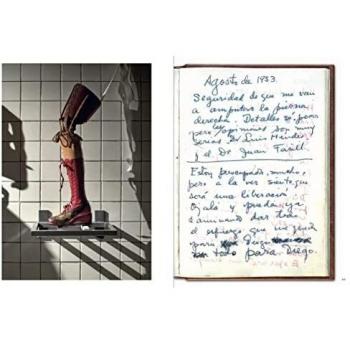 Agosto de 1953.
Seguridad de que me van
a amputar la pierna
derecha. Detalles sé pocos
pero las opiniones son muy
serias. Dr Luis Méndez
y el Dr. Juan Farill.
Estoy preocupada, mucho,
pero a la vez siento que
será una liberación
Ojalá y pueda ya
caminando dar todo
el esfuerzo que me queda
para Diego
todo para Diego.